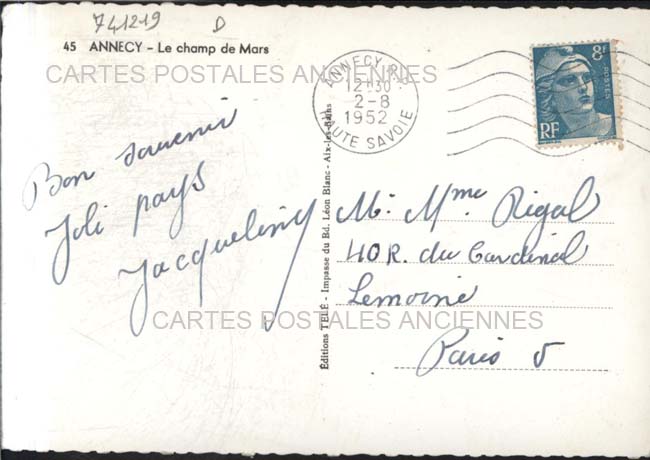 741219 D
45 ANNECY - Le champ de Mars
CARTES POSTALES ANCIENNES
ANNECY R.P.
12H30
2-8
1952
HAUTE SAVOIE
8F
POSTES
RF
Bon souvenir
Joli pays
Jacqueliny
Éditions TELÉ - Impasse du Bd. Léon Blanc - Aix-les-Bains
M. Mme Rigal
40 R. du Cardinal
Lemoine
Paris V
CARTES POSTALES ANCIENNES